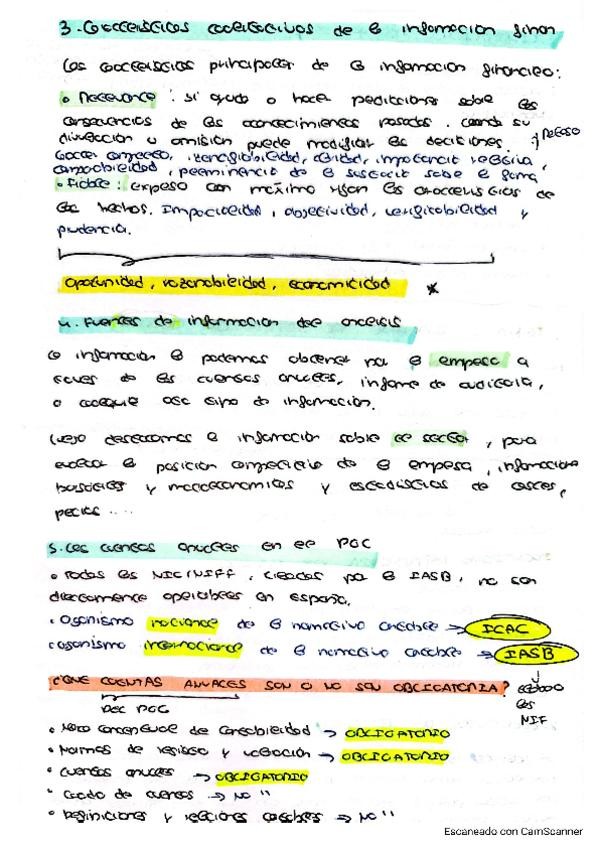 3. Características cualitativas de la información finan
Las características principales de la información financiera:
• Relevancia : si ayuda a hacer predicciones sobre las
consecuencias de los acontecimientos pasados. cuando su
omisión puede modificar las decisiones.
integridad, claridad, importancia relativa,
comparabilidad, preeminencia de la sobre la forma
• Fiable : expresa con máximo rigor las características de
los hechos. Imparcialidad, objetividad, verificabilidad y
prudencia.
Oportunidad, razonabilidad, economicidad *
4. Fuentes de información del análisis
la información la podemos obtener por la empresa a
través de las cuentas anuales, informe de auditoría,
o cualquier otro tipo de información.
Luego la información sobre el sector, para
evaluar la posición de la empresa, información
y macroeconómicos y estadísticas de
5. Las cuentas anuales en el PGC
• Todas las NIC/NIIF, creadas por el IASB, no son
directamente aplicables en España.
• Organismo nacional de la normativa contable → ICAC
• organismo internacional de la normativa contable → IASB
¿QUE CUENTAS ANUALES SON O NO SON OBLIGATORIA?
DEL PGC
las
NIIF
• Marco conceptual de contabilidad → OBLIGATORIO
• Normas de registro y valoración → OBLIGATORIO
• Cuentas anuales → OBLIGATORIO
• Cuadro de cuentas → NO "
• Definiciones y relaciones contables → NO "
Escaneado con CamScanner